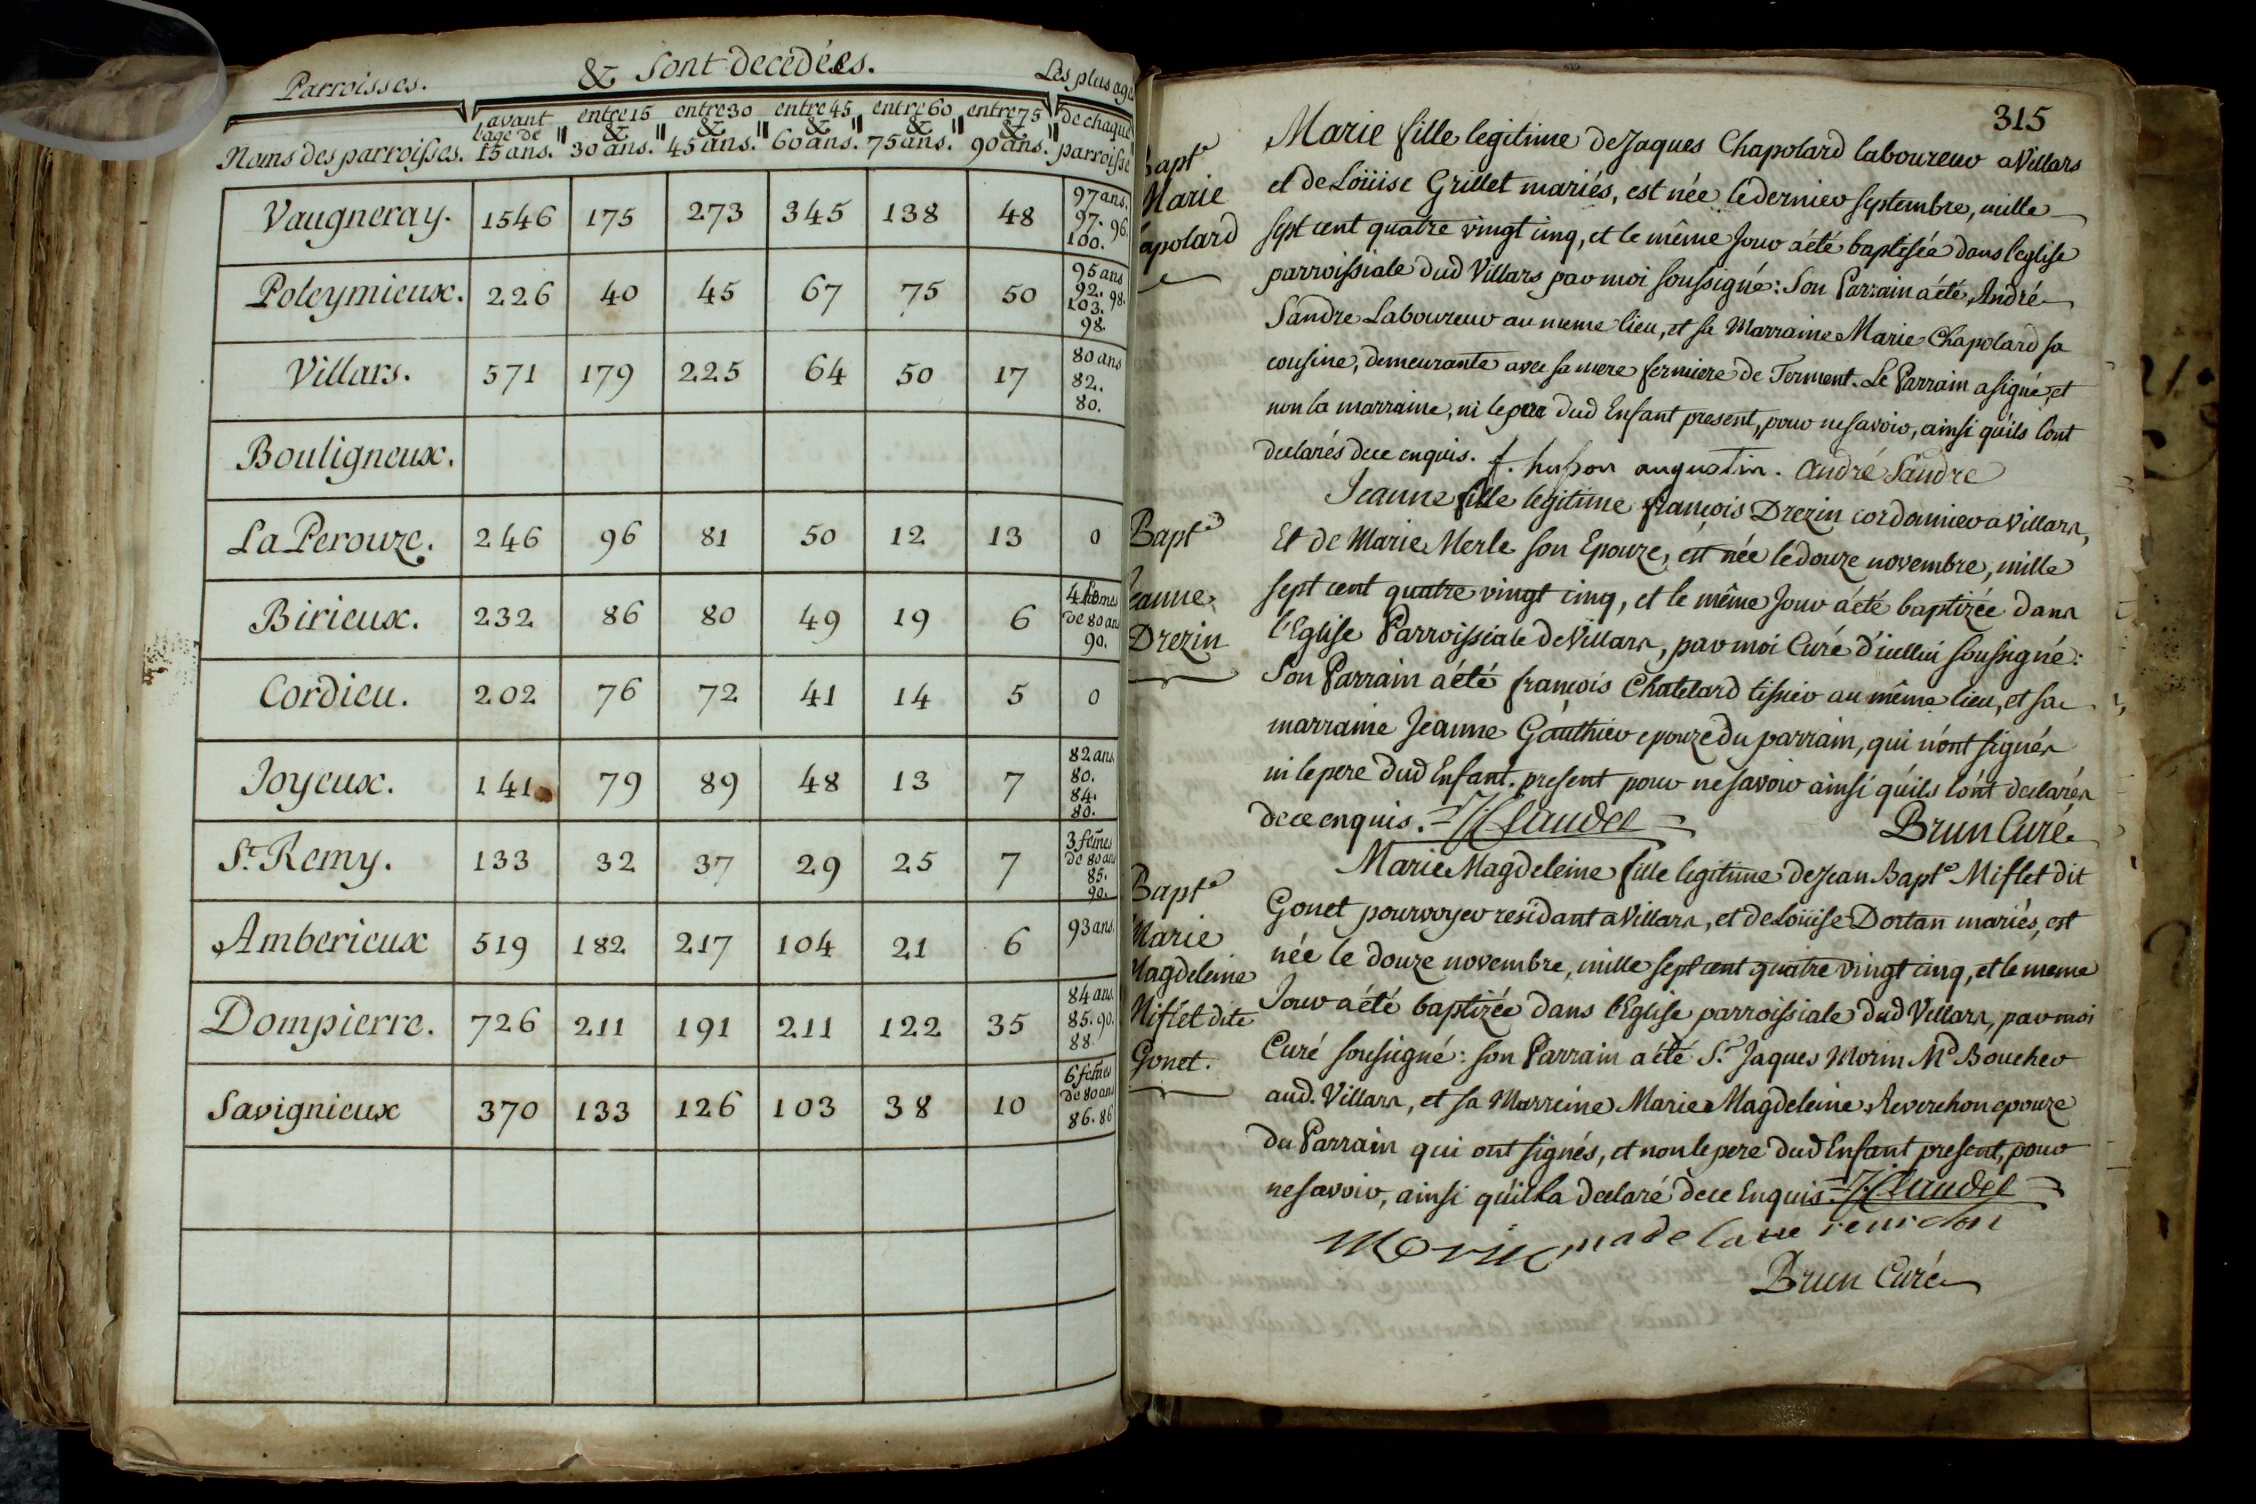 Parroisses. & Sont decedées. Les plus agé
Noms des parroisses. avant l'age de 15 ans. " entre 15 & 30 ans. " entre 30 & 45 ans. " entre 45 & 60 ans. " entre 60 & 75 ans. " entre 75 & 90 ans. " de chaque parroisse
Vaugneray. 1546 175 273 345 138 48 97 ans. 97. 96. 100.
Poleymieux. 226 40 45 67 75 50 95 ans 92. 98. 103. 98.
Villars. 571 179 225 64 50 17 80 ans 82. 80.
Bouligneux.
La Perouze. 246 96 81 50 12 13 0
Birieux. 232 86 80 49 19 6 4 de 80 ans 90.
Cordieu. 202 76 72 41 14 5 0
Joyeux. 141 79 89 48 13 7 82 ans. 80. 84. 80.
St. Remy. 133 32 37 29 25 7 3 femes de 80 ans 85. 90.
Ambericux 519 182 217 104 21 6 93 ans.
Dompierre. 726 211 191 211 122 35 84 ans. 85. 90. 88.
Savignieux 370 133 126 103 38 10 6 femes de 80 ans 86. 86
315
Bapte
Marie
apolard
Marie fille legitime de Jaques Chapolard laboureur a Villars
et de Loüise Grillet mariés, est née le dernier septembre, mille
sept cent quatre vingt cinq, et le même Jour a été baptisée dans l'eglise
parroissiale dud Villars par moi soussigné: Son Parrain a été André
Sandre Laboureur au meme lieu, et sa Marraine Marie Chapolard sa
cousine, demeurante avec sa mere fermiere de Torment. Le Parrain a signé et
non la marraine, ni le pere dud Enfant present, pour ne savoir, ainsi qu'ils l'ont
declarés de ce enquis. f. husson augustin. andré Sandre
Bapte
eanne
Drezin
Jeanne fille legitime françois Drezin cordonnier a Villars,
Et de Marie Merle son Epouze, est née le douze novembre, mille
sept cent quatre vingt cinq, et le même Jour a été baptizée dans
l'Eglise Parroissiale de Villars, par moi Curé d'icellui soussigné:
Son Parrain a été françois Chatelard tissier au même lieu, et sa
marraine Jeanne Gauthier epouze du parrain, qui n'ont signés
ni le pere dud Enfant. present pour ne savoir ainsi qu'ils l'ont declarés
de ce enquis. Claudel Brun Curé
Bapte
Marie
Magdeleine
Miflet dite
Gonet.
Marie Magdeleine fille legitime de Jean Bapte Miflet dit
Gonet pourvoyer residant a Villars, et de Loüise Dortan mariés, est
née le douze novembre, mille sept cent quatre vingt cinq, et le meme
Jour a été baptizée dans l'Eglise parroissiale dud Villars, par moi
Curé soussigné: son Parrain a été Sr. Jaques Morin Md Boucher
aud. Villars, et sa Marreine Marie Magdeleine Reverchon epouze
du Parrain qui ont signés, et non le pere dud Enfant present, pour
ne savoir, ainsi qu'il l'a declaré de ce Enquis. Claudel
Morin madelaine
Brun Curé